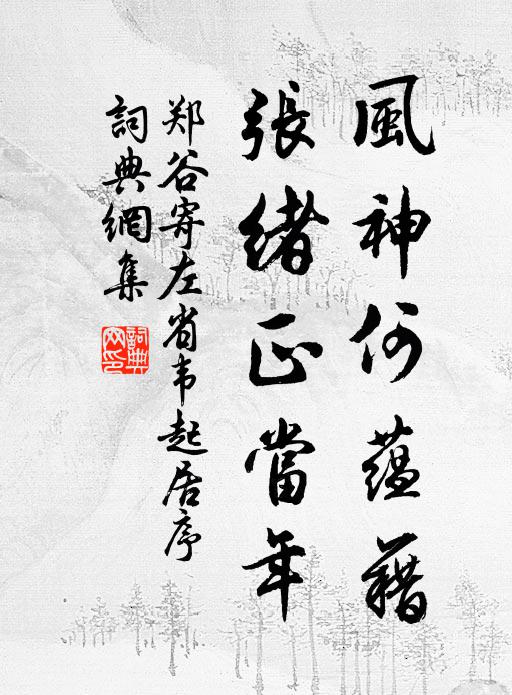 風神何蕴藉
張緒正當年
郑谷寄左省韦起居序
詞典網集
詞典網印